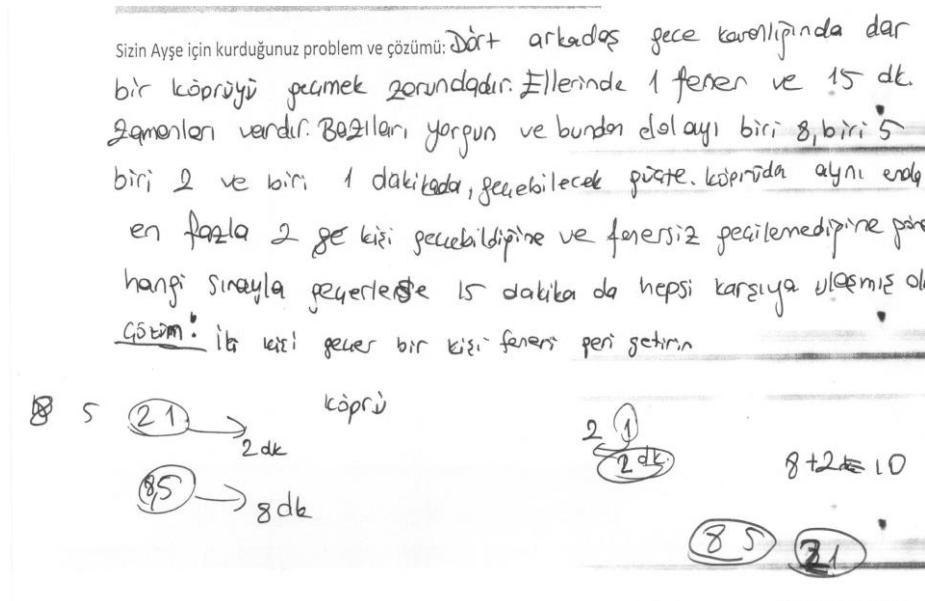 Sizin Ayşe için kurduğunuz problem ve çözümü: Dört arkadaş gece karanlığında dar
bir köprüyü geçmek zorundadır. Ellerinde 1 fener ve 15 dk.
zamanları vardır. Bazıları yorgun ve bundan dolayı biri 8, biri 5
biri 2 ve biri 1 dakikada, geçebilecek güçte. köprüda aynı anda
en fazla 2 kişi geçebildiğine ve fenersiz geçilemediğine göre
hangi sırayla geçerlerse 15 dakika da hepsi karşıya ulaşmış ol
Çözüm: iki kişi geçer bir kişi feneri geri getirin
8 5 2 1 köprü 2 1
2 dk 2 dk. 8+2=10
8,5 8 dk
8 5 2 1